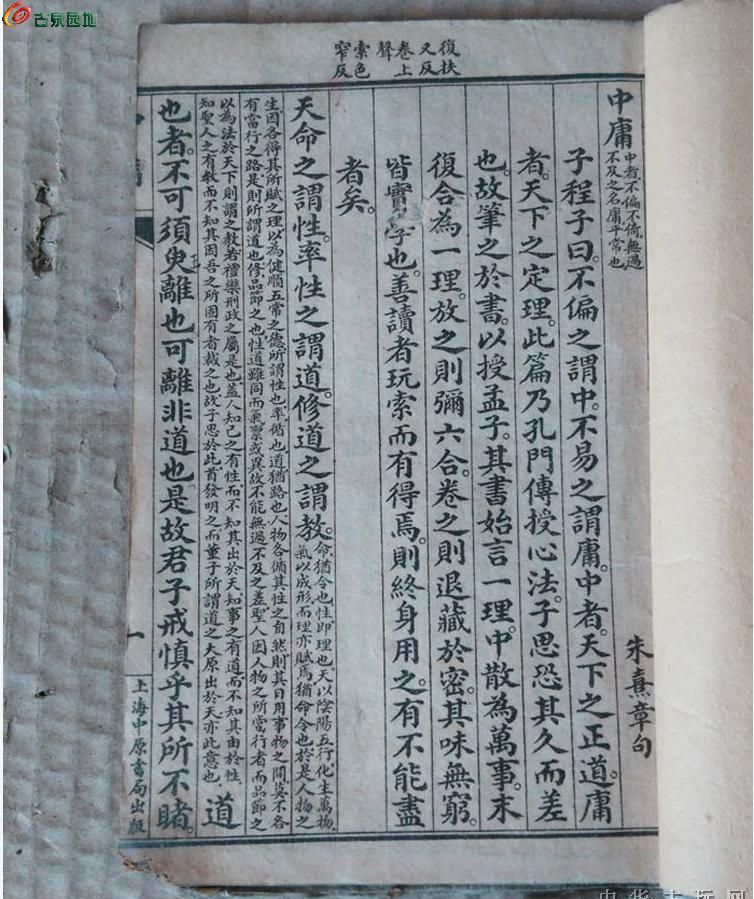 古泉园地
復扶
又反
卷上
聲
索色
窄反
中庸
中者。不偏不倚。無過
不及之名。庸。平常也。
朱熹章句
子程子曰。不偏之謂中。不易之謂庸。中者。天下之正道。庸
者。天下之定理。此篇乃孔門傳授心法。子思恐其久而差
也。故筆之於書。以授孟子。其書始言一理。中散為萬事。末
復合為一理。放之則彌六合。卷之則退藏於密。其味無窮。
皆實學也。善讀者玩索而有得焉。則終身用之。有不能盡
者矣。
天命之謂性。率性之謂道。修道之謂教。
命猶令也。性即理也。天以陰陽五行化生萬物。
氣以成形。而理亦賦焉。猶命令也。於是人物之
生。因各得其所賦之理。以為健順五常之德。所謂性也。率循也。道猶路也。人物各循其性之自然。則其日用事物之間。莫不各
有當行之路。是則所謂道也。修品節之也。性道雖同。而氣稟或異。故不能無過不及之差。聖人因人物之所當行者而品節之
以為法於天下。則謂之教。若禮樂刑政之屬是也。蓋人知己之有性。而不知其出於天。知事之有道。而不知其由於性。
知聖人之有教。而不知其因吾之所固有者裁之也。故子思於此首發明之。而董子所謂道之大原出於天。亦此意也。
道
也者。不可須臾離也可離非道也是故君子戒慎乎其所不睹。
一
上海中原書局出版